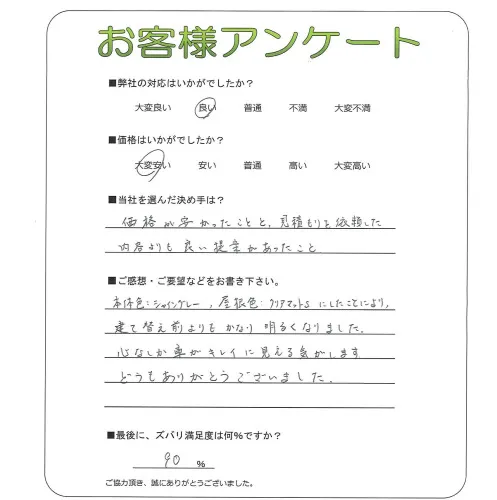 お客様アンケート
■弊社の対応はいかがでしたか？
大変良い 良い 普通 不満 大変不満
■価格はいかがでしたか？
大変安い 安い 普通 高い 大変高い
■当社を選んだ決め手は？
価格が安かったことと、見積もりを依頼した
内容よりも良い提案があったこと
■ご感想・ご要望などをお書き下さい。
本体色：シャイングレー，屋根色：クリアマットS にしたことにより，
建て替え前よりもかなり明るくなりました。
心なしか車がキレイに見える気がします
どうもありがとうございました．
■最後に、ズバリ満足度は何％ですか？
90 ％
ご協力頂き、誠にありがとうございました。